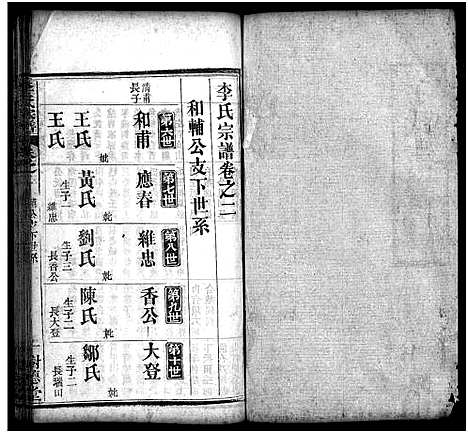 李氏宗譜卷之二
和輔公支下世系
清甫
長子
第六世
和甫
妣
王氏
王氏
第七世
應春
乾
黃氏
生子一
維忠
第八世
維忠
乾
劉氏
生子三
長香公
第九世
香公
乾
陳氏
生子二
長大登
第十世
大登
乾
鄒氏
生子二